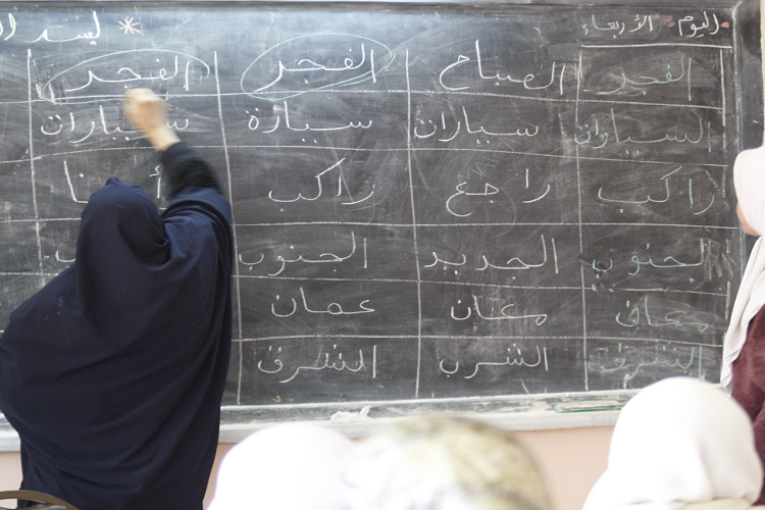 اليوم الأربعاء * ليسد
الفجر الصباح الفجر الفجر
السيارات سيارات سيارة سيارات
راكب راجع راكب أنا
الجنوب الجديد الجنوب
معان معان عمان
الشرق الشرب الشرق